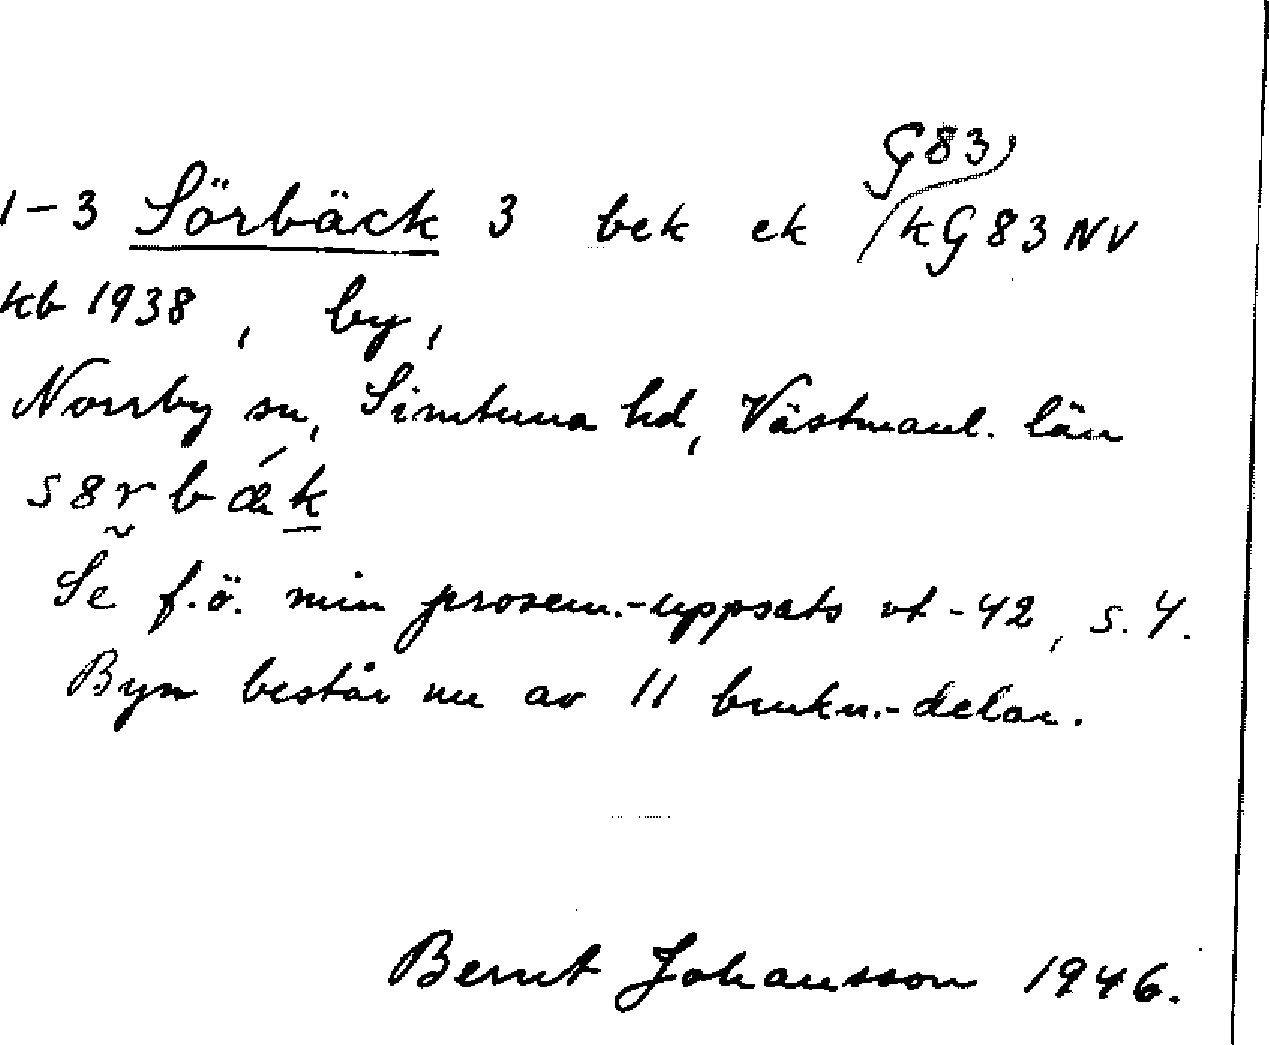 G83
1-3 Sörbäck 3 bek ek /kG83NV
kb 1938, by,
Norrby sn, Simtuna hd, Västmanl. län
s8rbǽk
Se f.ö. min prosem.-uppsats vt-42, s.4.
Byn består nu av 11 brukn.-delar.
Bernt Johansson 1946.